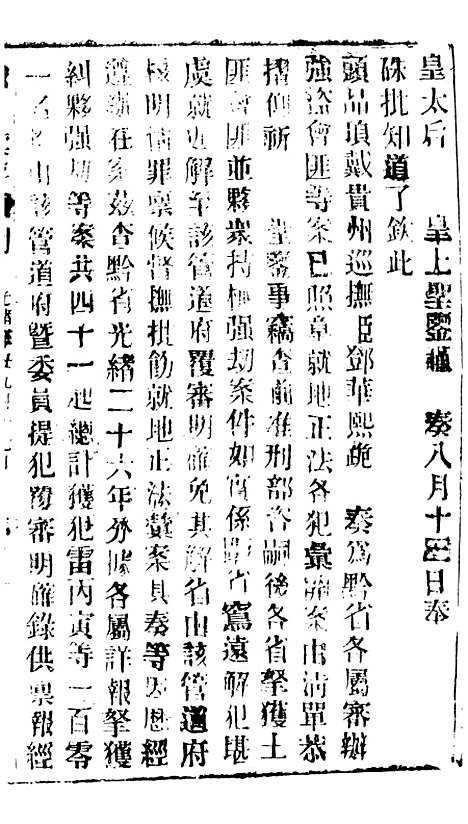 皇太后　皇上聖鑒謹　奏八月十三日奉
硃批知道了欽此
頭品頂戴貴州巡撫臣鄧華熙跪　奏為黔省各屬審辦
強盜會匪等案已照章就地正法各犯彙案由清單恭
摺仰祈　聖鑒事竊查前准刑部咨嗣後各省拏獲土
匪會匪並夥眾持械强刦案件如實係距省窵遠解犯堪
虞就近解至該管道府覆審明確免其解省由該管道府
核明情罪禀候督撫批飭就地正法彙案具奏等因歷經
遵辦在案茲查黔省光緒二十六年分據各屬詳報拏獲
糾夥强刦等案共四十一起總計獲犯雷內寅等一百零
一名均由該管道府暨委員提犯覆審明確錄供禀報經